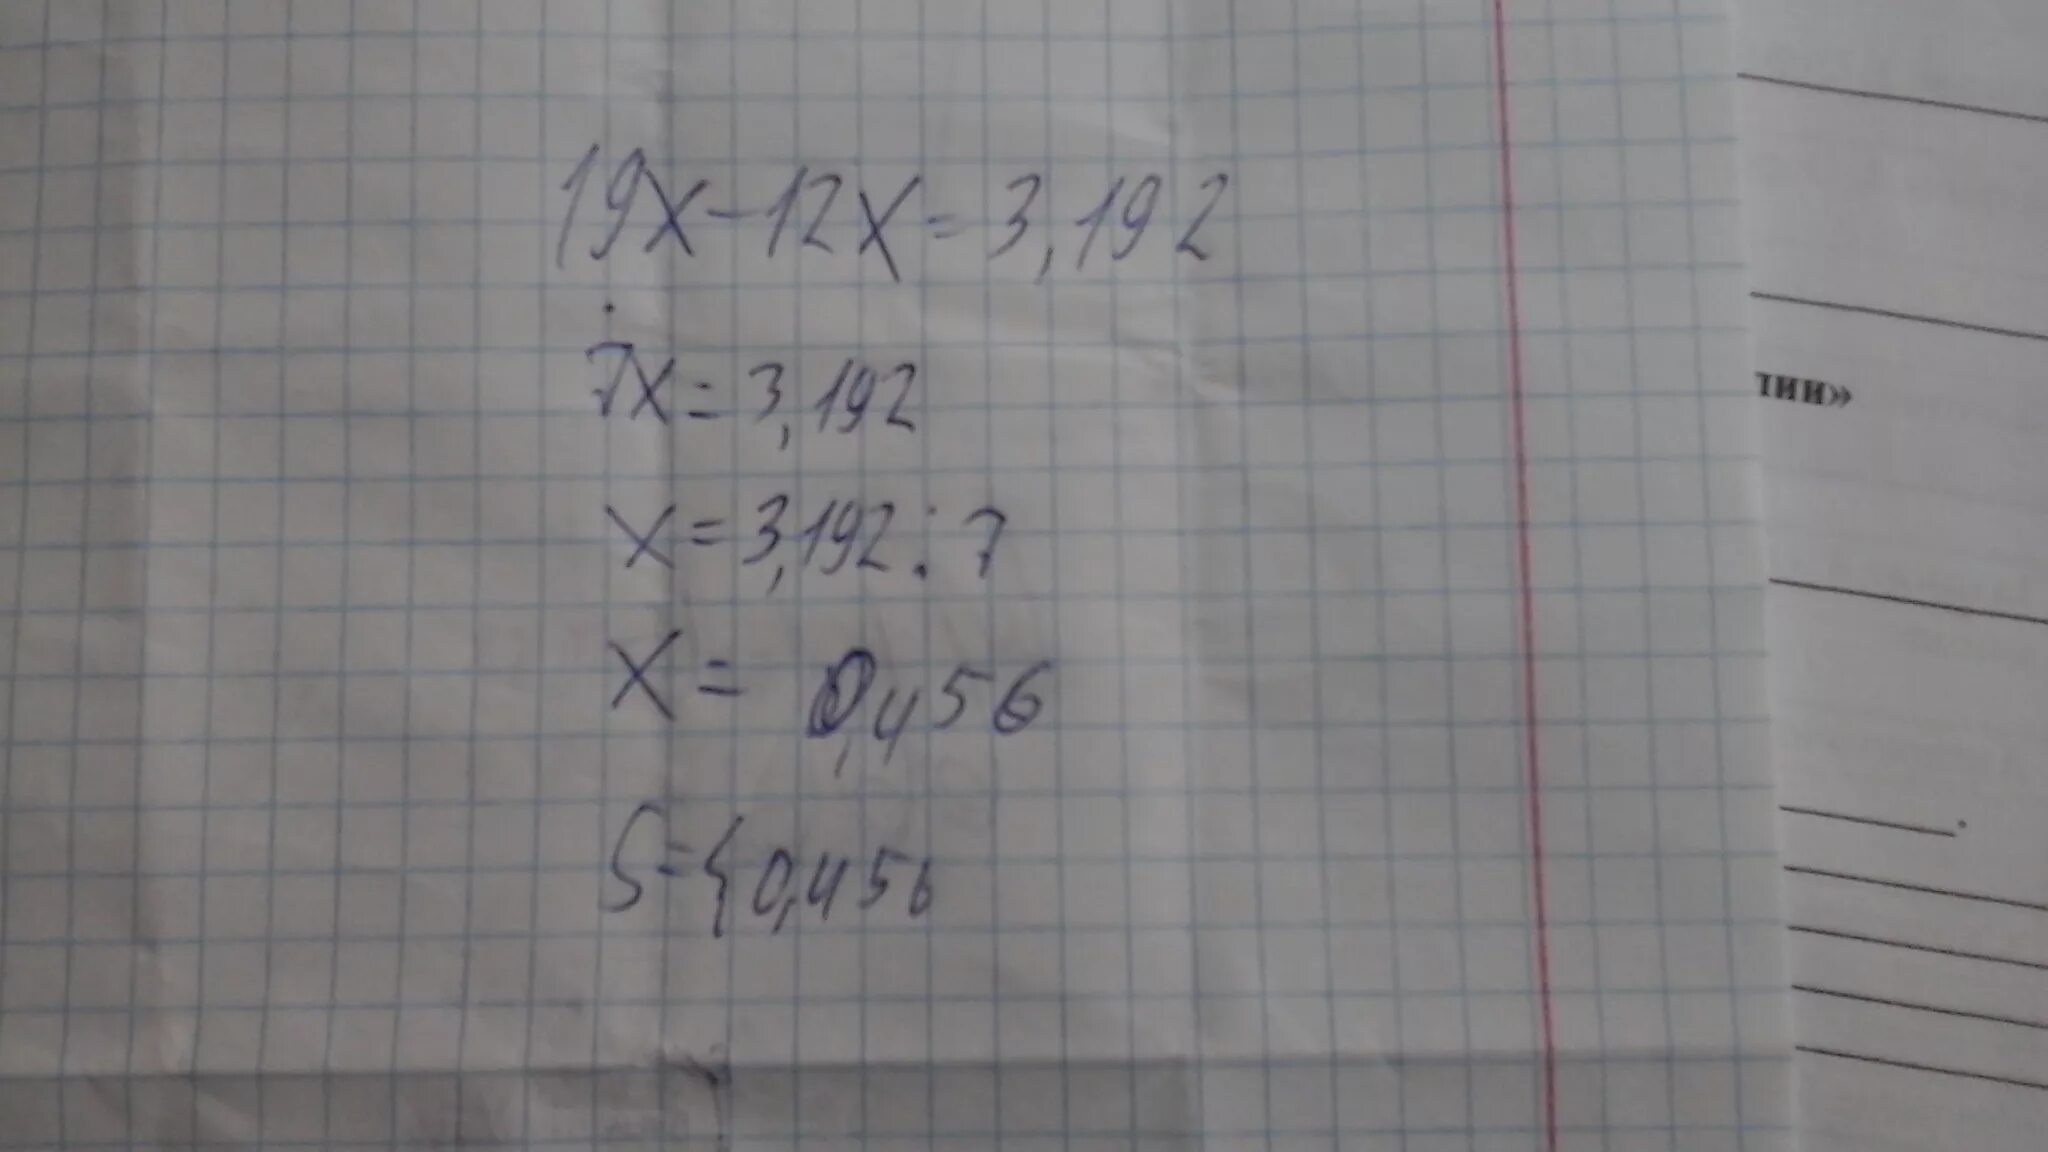 19x-12x=3,192
7x=3,192
x=3,192:7
x=0,456
S={0,456